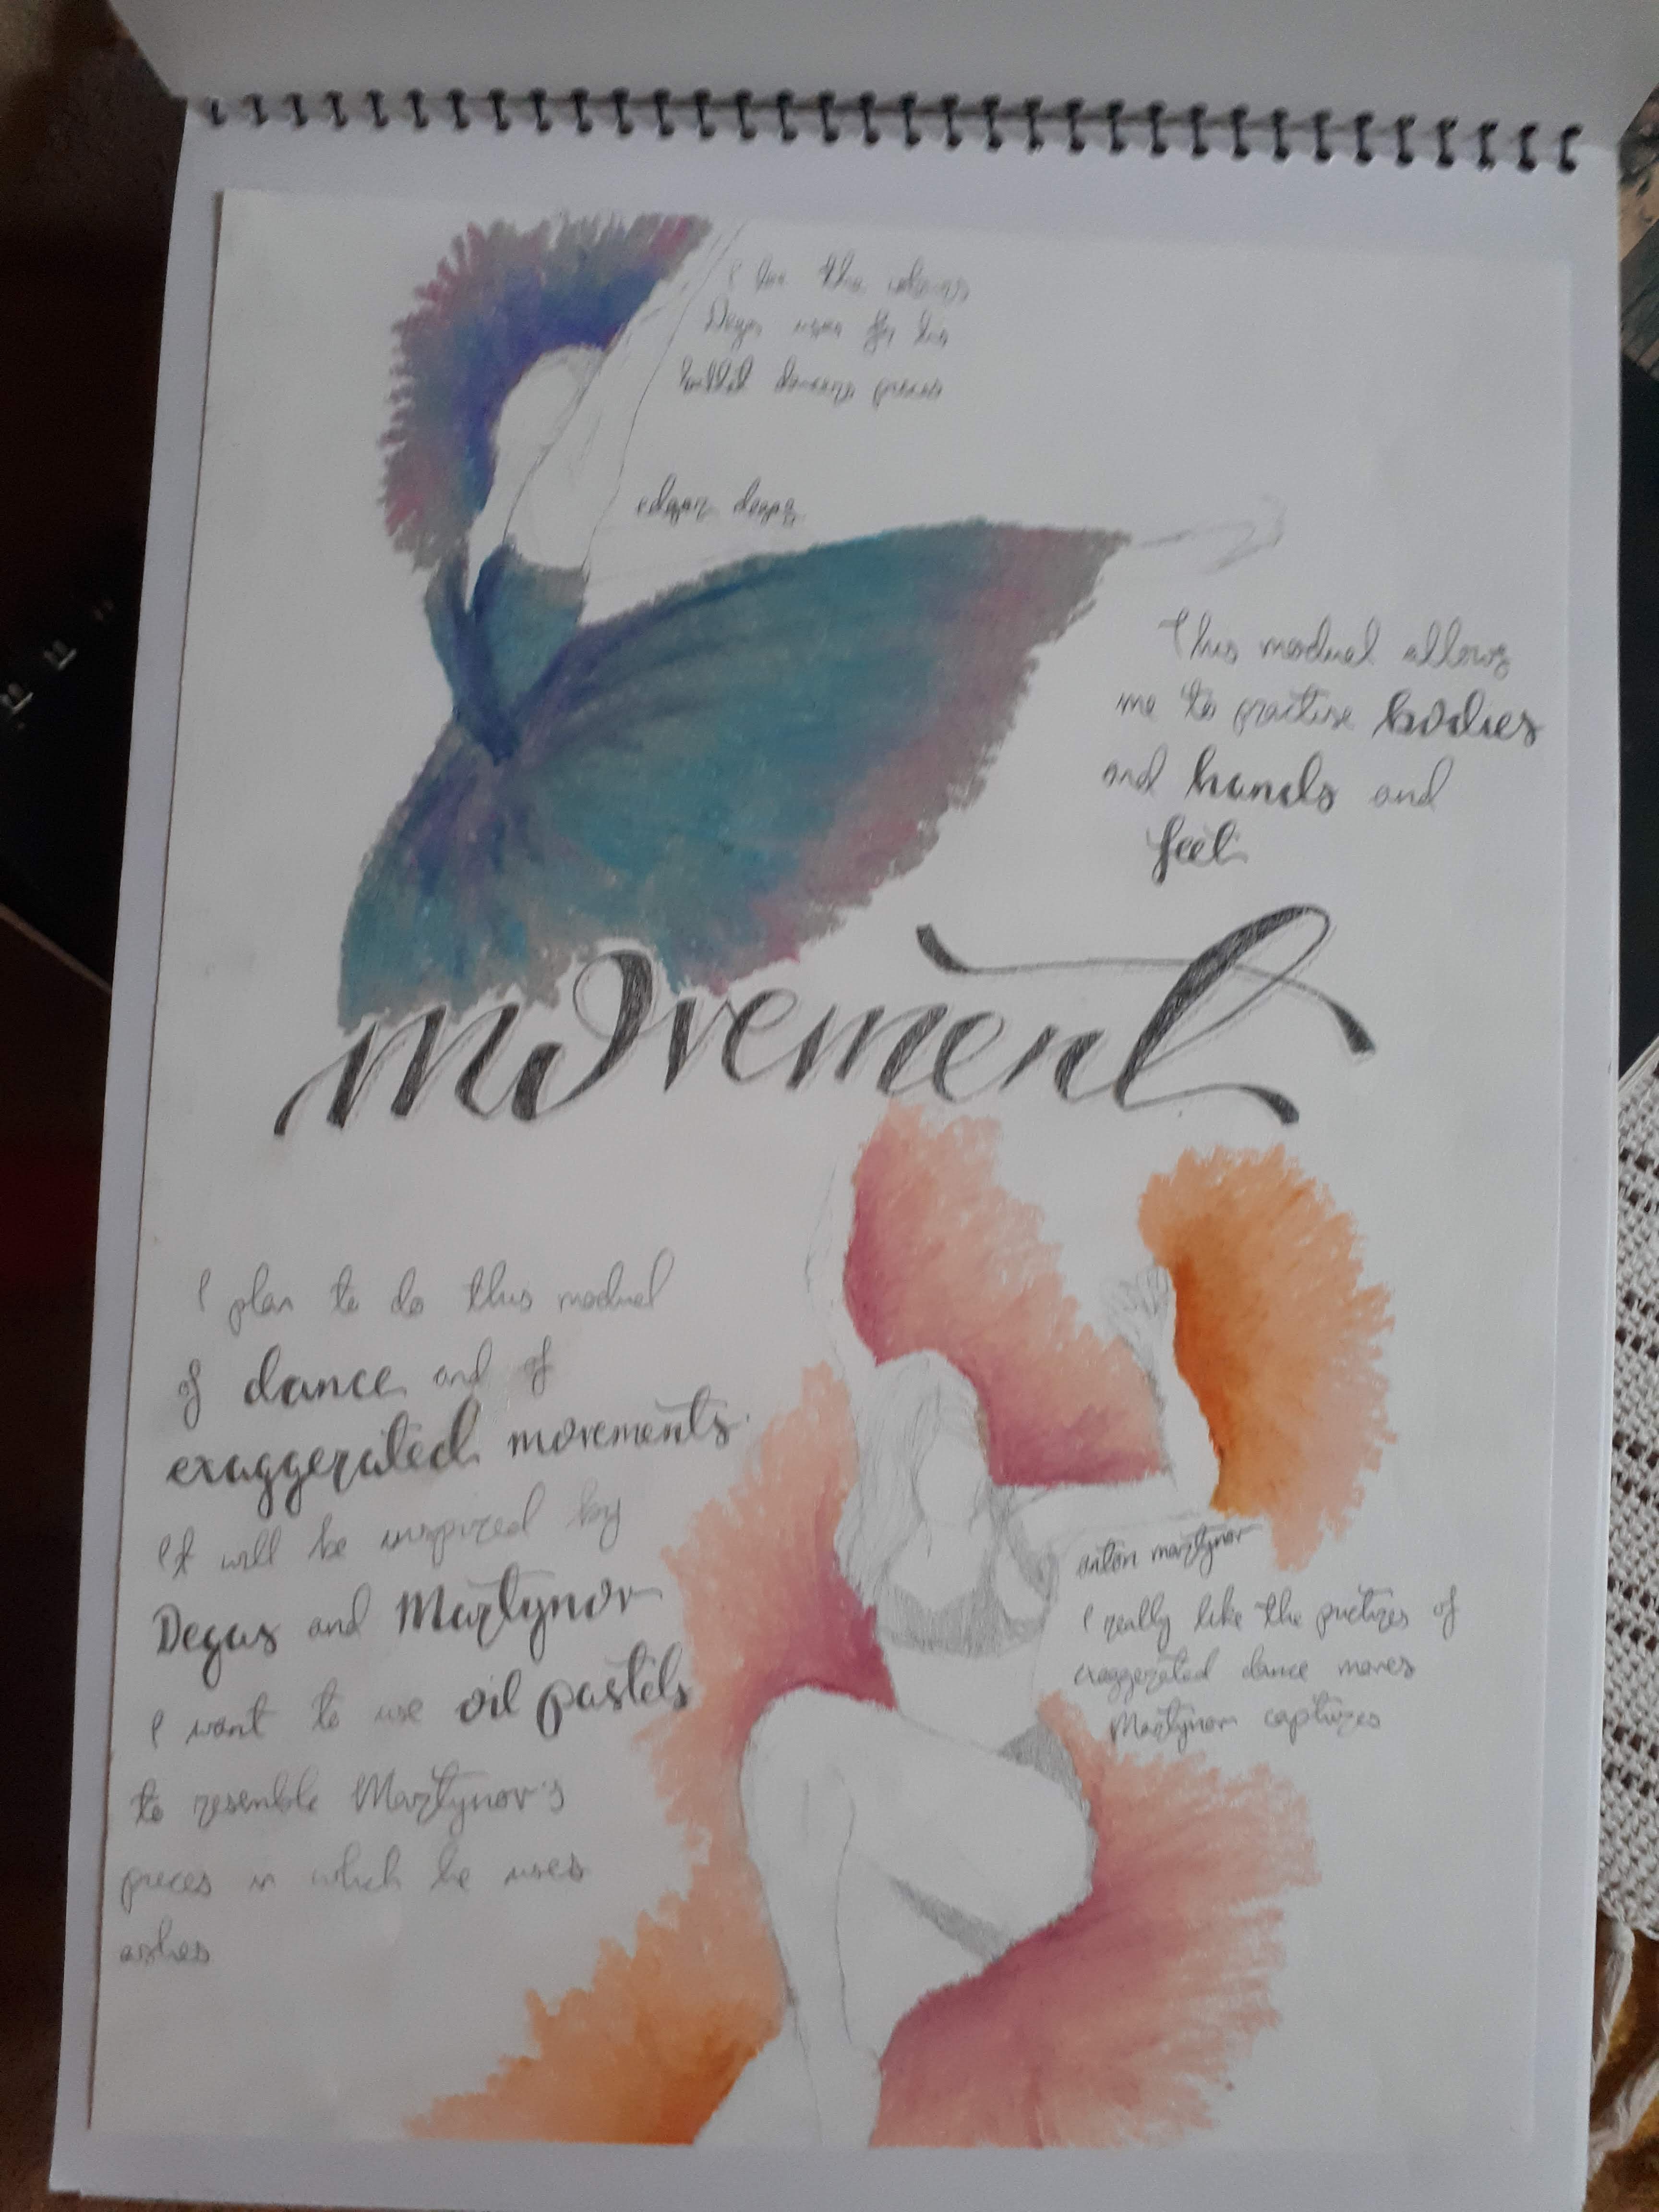 I love the colours
Degas uses for his
ballet dancers pieces
edgar degas
This moduel allows
me to practise bodies
and hands and
feet
movement
I plan to do this moduel
of dance and of
exaggerated movements.
It will be inspired by
Degas and Martynov
I want to use oil pastels
to resemble Martynov's
pieces in which he uses
ashes
anton martynov
I really like the pictures of
exaggerated dance moves
Martynov captures